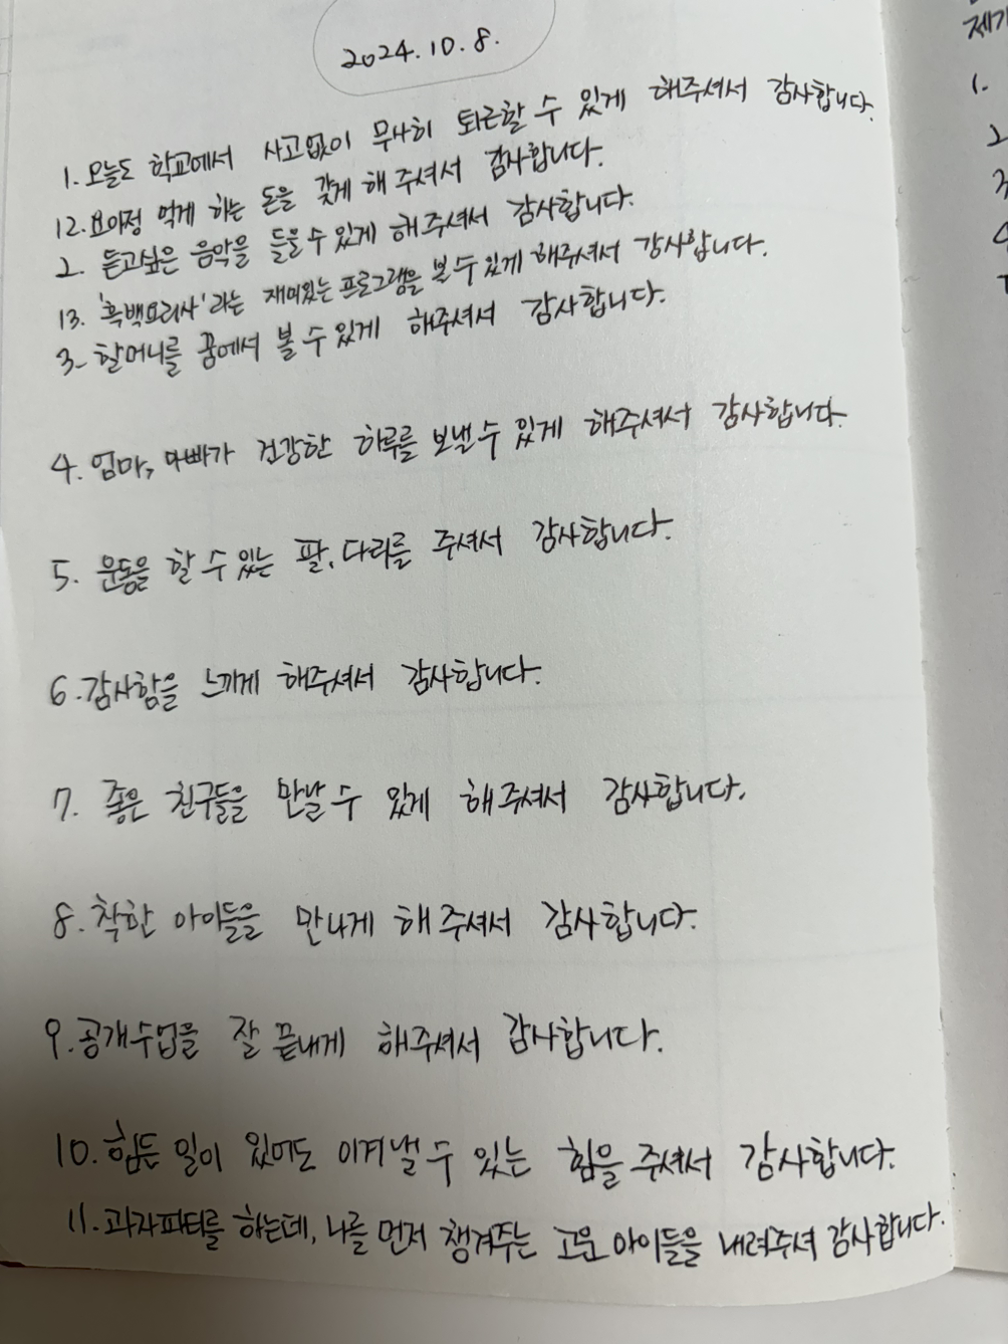 2024.10.8.
1. 오늘도 학교에서 사고없이 무사히 퇴근할 수 있게 해주셔서 감사합니다.
12. 요아정 먹게 하는 돈을 갖게 해주셔서 감사합니다.
2. 듣고싶은 음악을 들을 수 있게 해주셔서 감사합니다.
13. '흑백요리사'라는 재미있는 프로그램을 볼 수 있게 해주셔서 감사합니다.
3. 할머니를 꿈에서 볼 수 있게 해주셔서 감사합니다.
4. 엄마, 아빠가 건강한 하루를 보낼 수 있게 해주셔서 감사합니다.
5. 운동을 할 수 있는 팔, 다리를 주셔서 감사합니다.
6. 감사함을 느끼게 해주셔서 감사합니다.
7. 좋은 친구들을 만날 수 있게 해주셔서 감사합니다.
8. 착한 아이들을 만나게 해주셔서 감사합니다.
9. 공개수업을 잘 끝내게 해주셔서 감사합니다.
10. 힘든 일이 있어도 이겨낼 수 있는 힘을 주셔서 감사합니다.
11. 과자파티를 하는데, 나를 먼저 챙겨주는 고운 아이들을 내려주셔 감사합니다.
1.
2
3